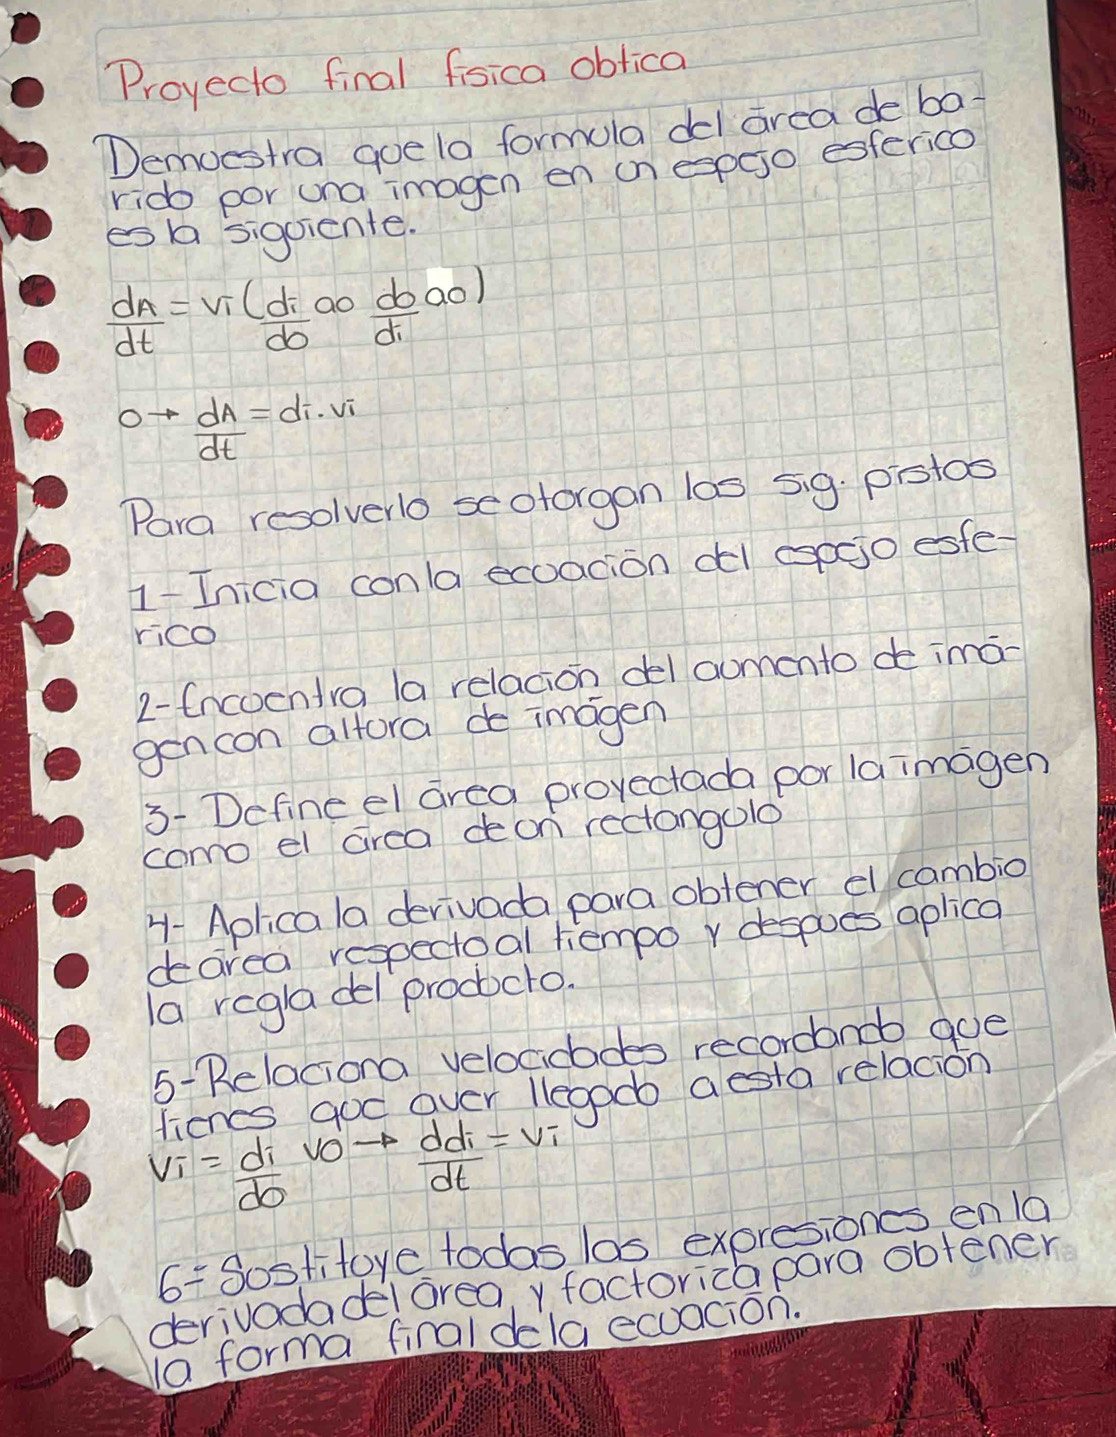 Proyecto final fisica obtica
Demuestra que la formula del área de ba-
rido por una imagen en un espejo esferico
es la siguiente.
dA/dt = vi (di/do ao do/di ao)
o → dA/dt = di . vi
Para resolverlo se otorgan las sig. pistas
1- Inicia con la ecuación del espejo esfe-
rico
2- Encuentra la relación del aumento de imá-
gen con altura de imágen
3- Define el área proyectada por la imágen
como el área de un rectangulo
4- Aplica la derivada para obtener el cambio
de área respecto al tiempo y despues aplica
la regla del producto.
5- Relaciona velocidades recordando que
tienes que aver llegado a esta relación
vi = di/do vo → ddi/dt = vi
6- Sustituye todas las expresiones en la
derivada del área y factoriza para obtener
la forma final de la ecuación.